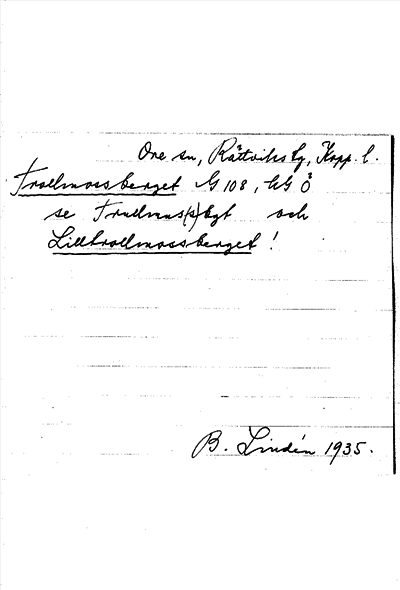 Ore sn, Rättviks tg, Kopp. l.
Trollmossberget G 108, UG Ö
se Trullmus(s)bgt och
Lilltrollmossberget!
B. Lindén 1935.